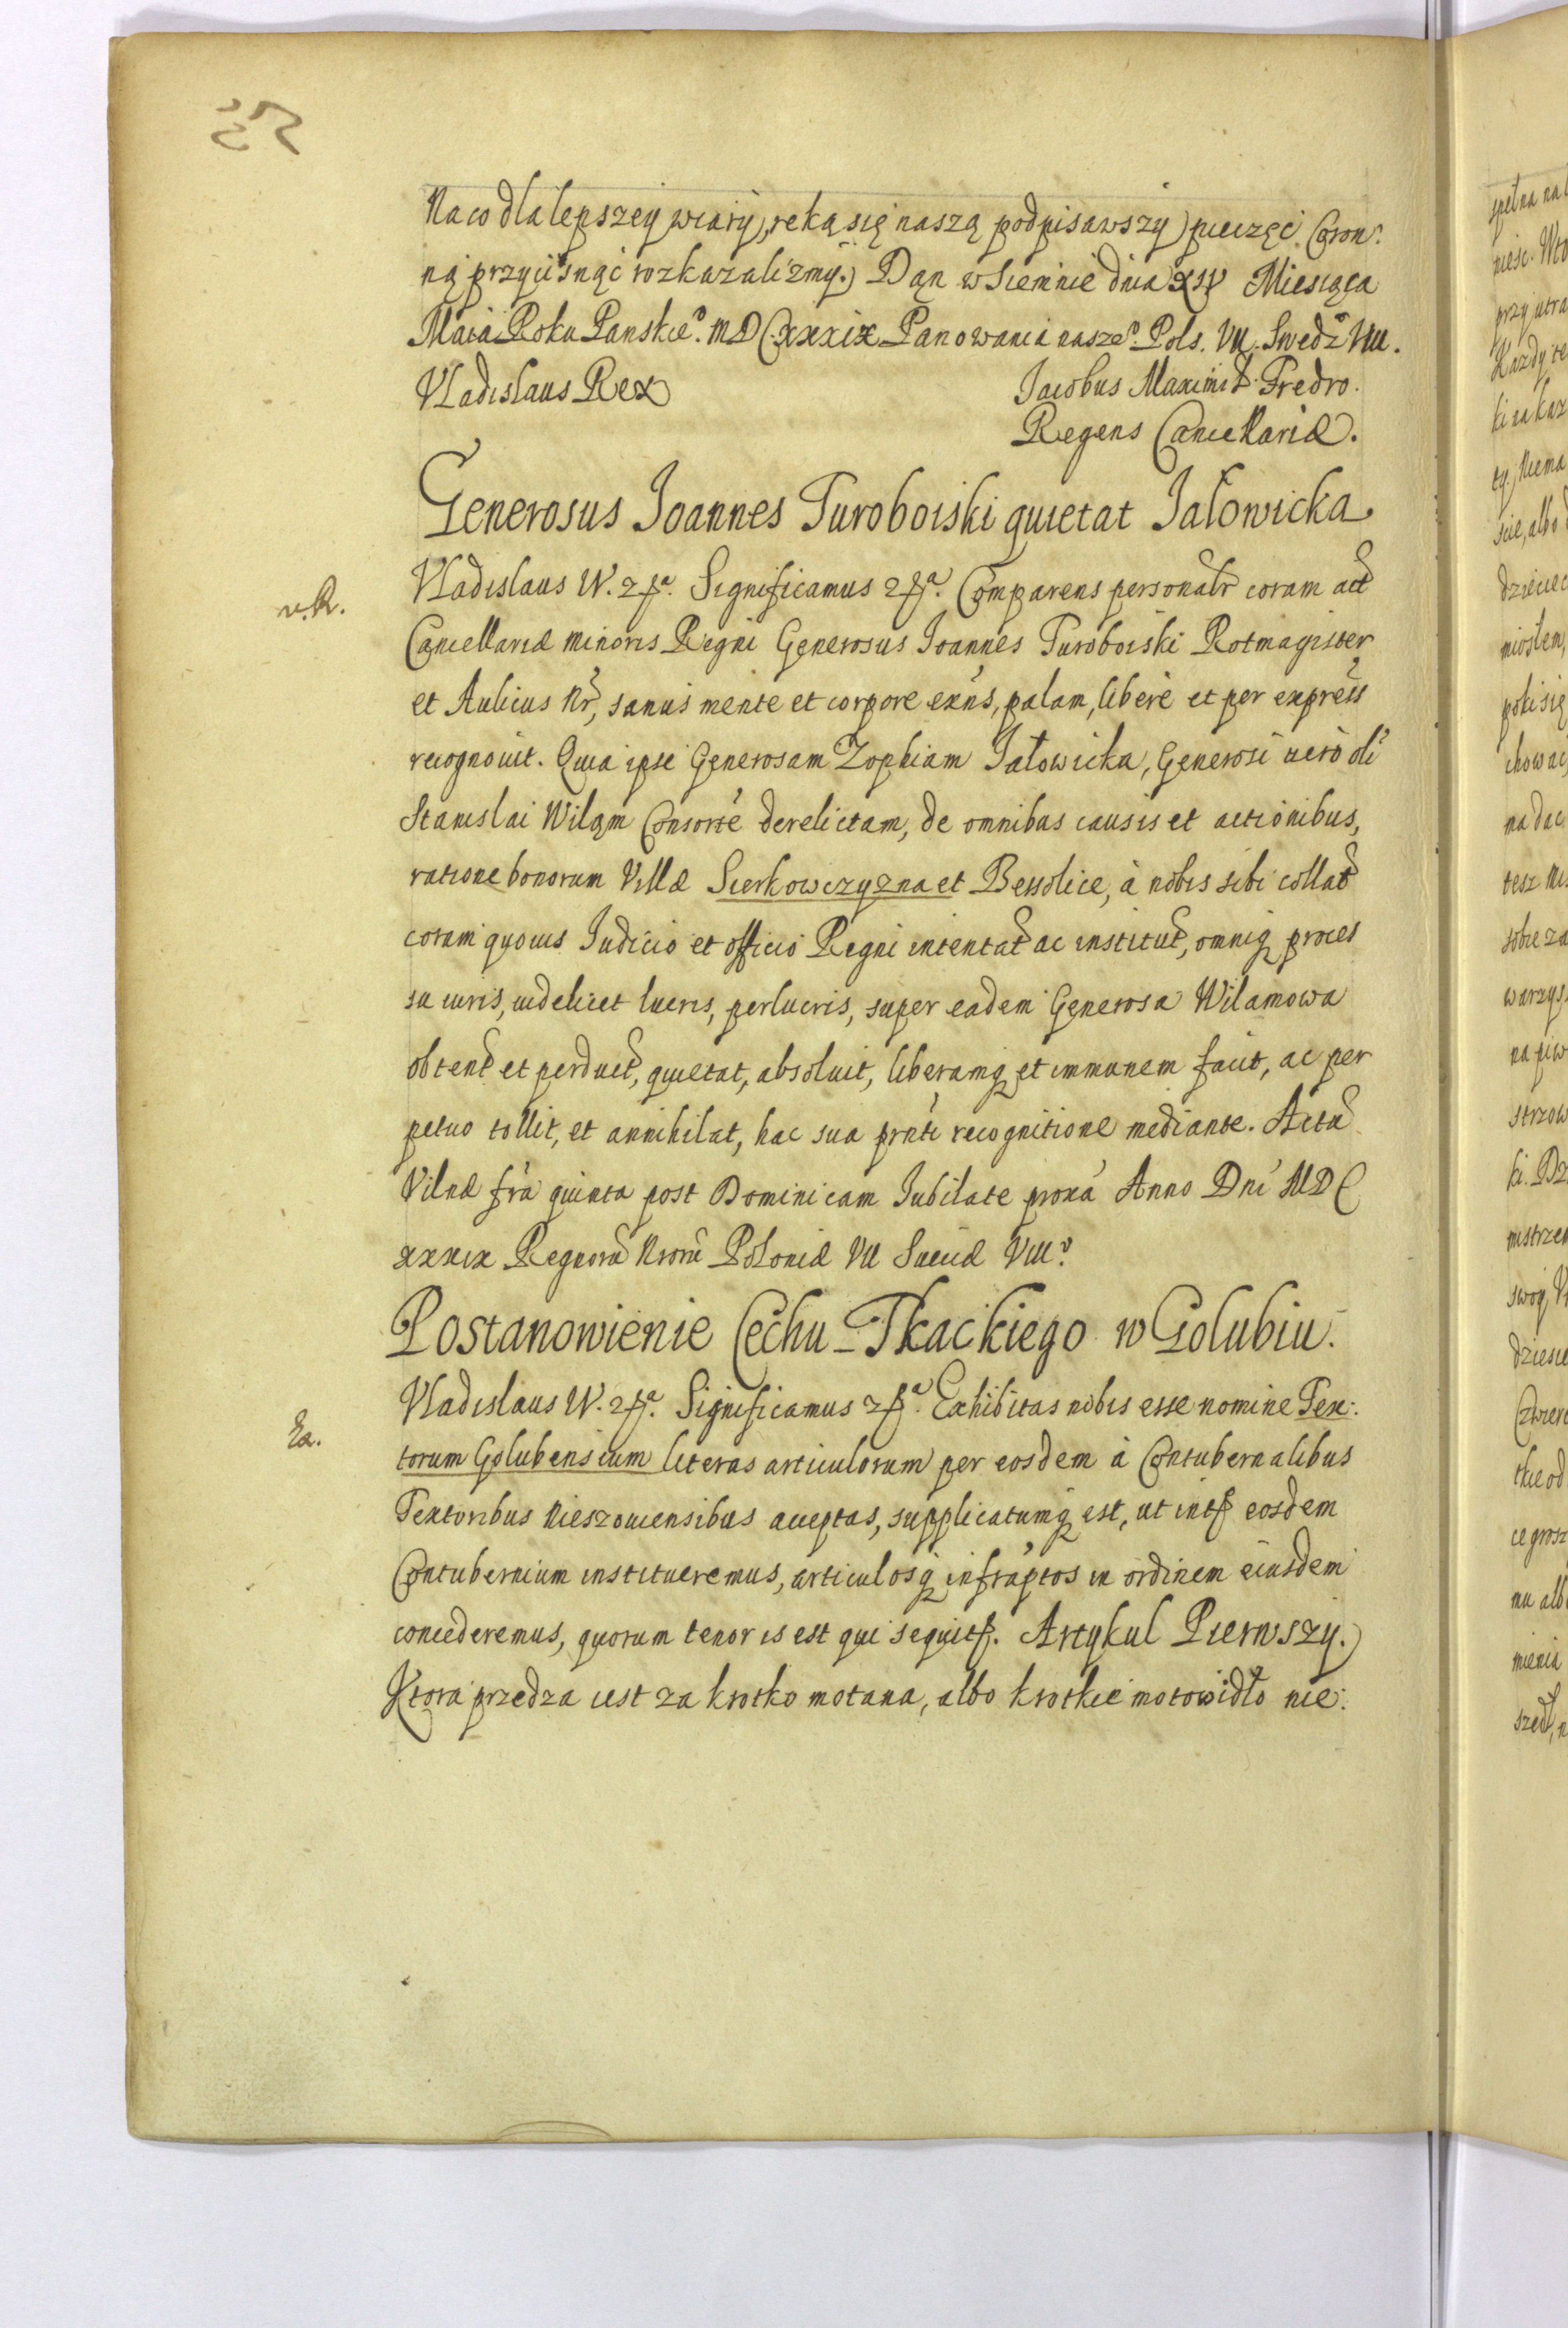 Na co dla lepszey wiary, ręką się naszą podpisawszy) pieczęć Coron:
ną przycisnąć rozkazalizmy.) Dan w dnia Miesiąca
Maia Roku Panskie°. MDCxxxix Panowania nasze°. Pols. VII. Swedz° VIII.
Vladislaus Rex Jacobus Maximil: Fredro.
Regens Cancellariæ.
Generosus Joannes Turoboiski quietat Jałowicka
v.R. Vladislaus IV. &ᵃ. Significamus &ᵃ. Comparens personalr coram act
Cancellariæ minoris Regni Generosus Joannes Turoboiski Rotmagister
et Aulicus Nr, sanus mente et corpore exns, palam, libere et per express
recognouit. Quia ipse Generosam Zophiam Jałowicka, Generosi uero oli
Stanislai Wiląm Consorte derelictam, de omnibus causis et actionibus,
ratione bonorum Villæ Sierkowczyzna et Bessolice, à nobis sibi collat
coram quouis Judicio et officio Regni intentat ac institut, omniq proces
su iuris, uidelicet lucris, perlucris, super eadem Generosa Wilamowa
obtent et perduct, quietat, absoluit, liberamq et immunem facit, ac per
petuo tollit, et annihilat, hac sua prnti recognitione mediante. Acta
Vilnæ fra quinta post Dominicam Jubilate proxa Anno Dni MDC
xxxix Regnoru Nroru Poloniæ VII Sueciæ VIII°
Postanowienie Cechu Tkackiego w Golubiu.
Vladislaus IV. &ᵃ. Significamus &ᵃ. Exhibitas nobis esse nomine Tex:
torum Golubensium literas articulorum per eosdem à Contubernalibus
Textoribus Nieszouiensibus acceptas, supplicatumq est, ut int eosdem
Contubernium institueremus, articulosq infraptos in ordinem eiusdem
concederemus, quorum tenor is est qui sequit. Artykul Pierwszy.)
Ktora przedza iest za krotko motana, albo krotkie motowidło nie: